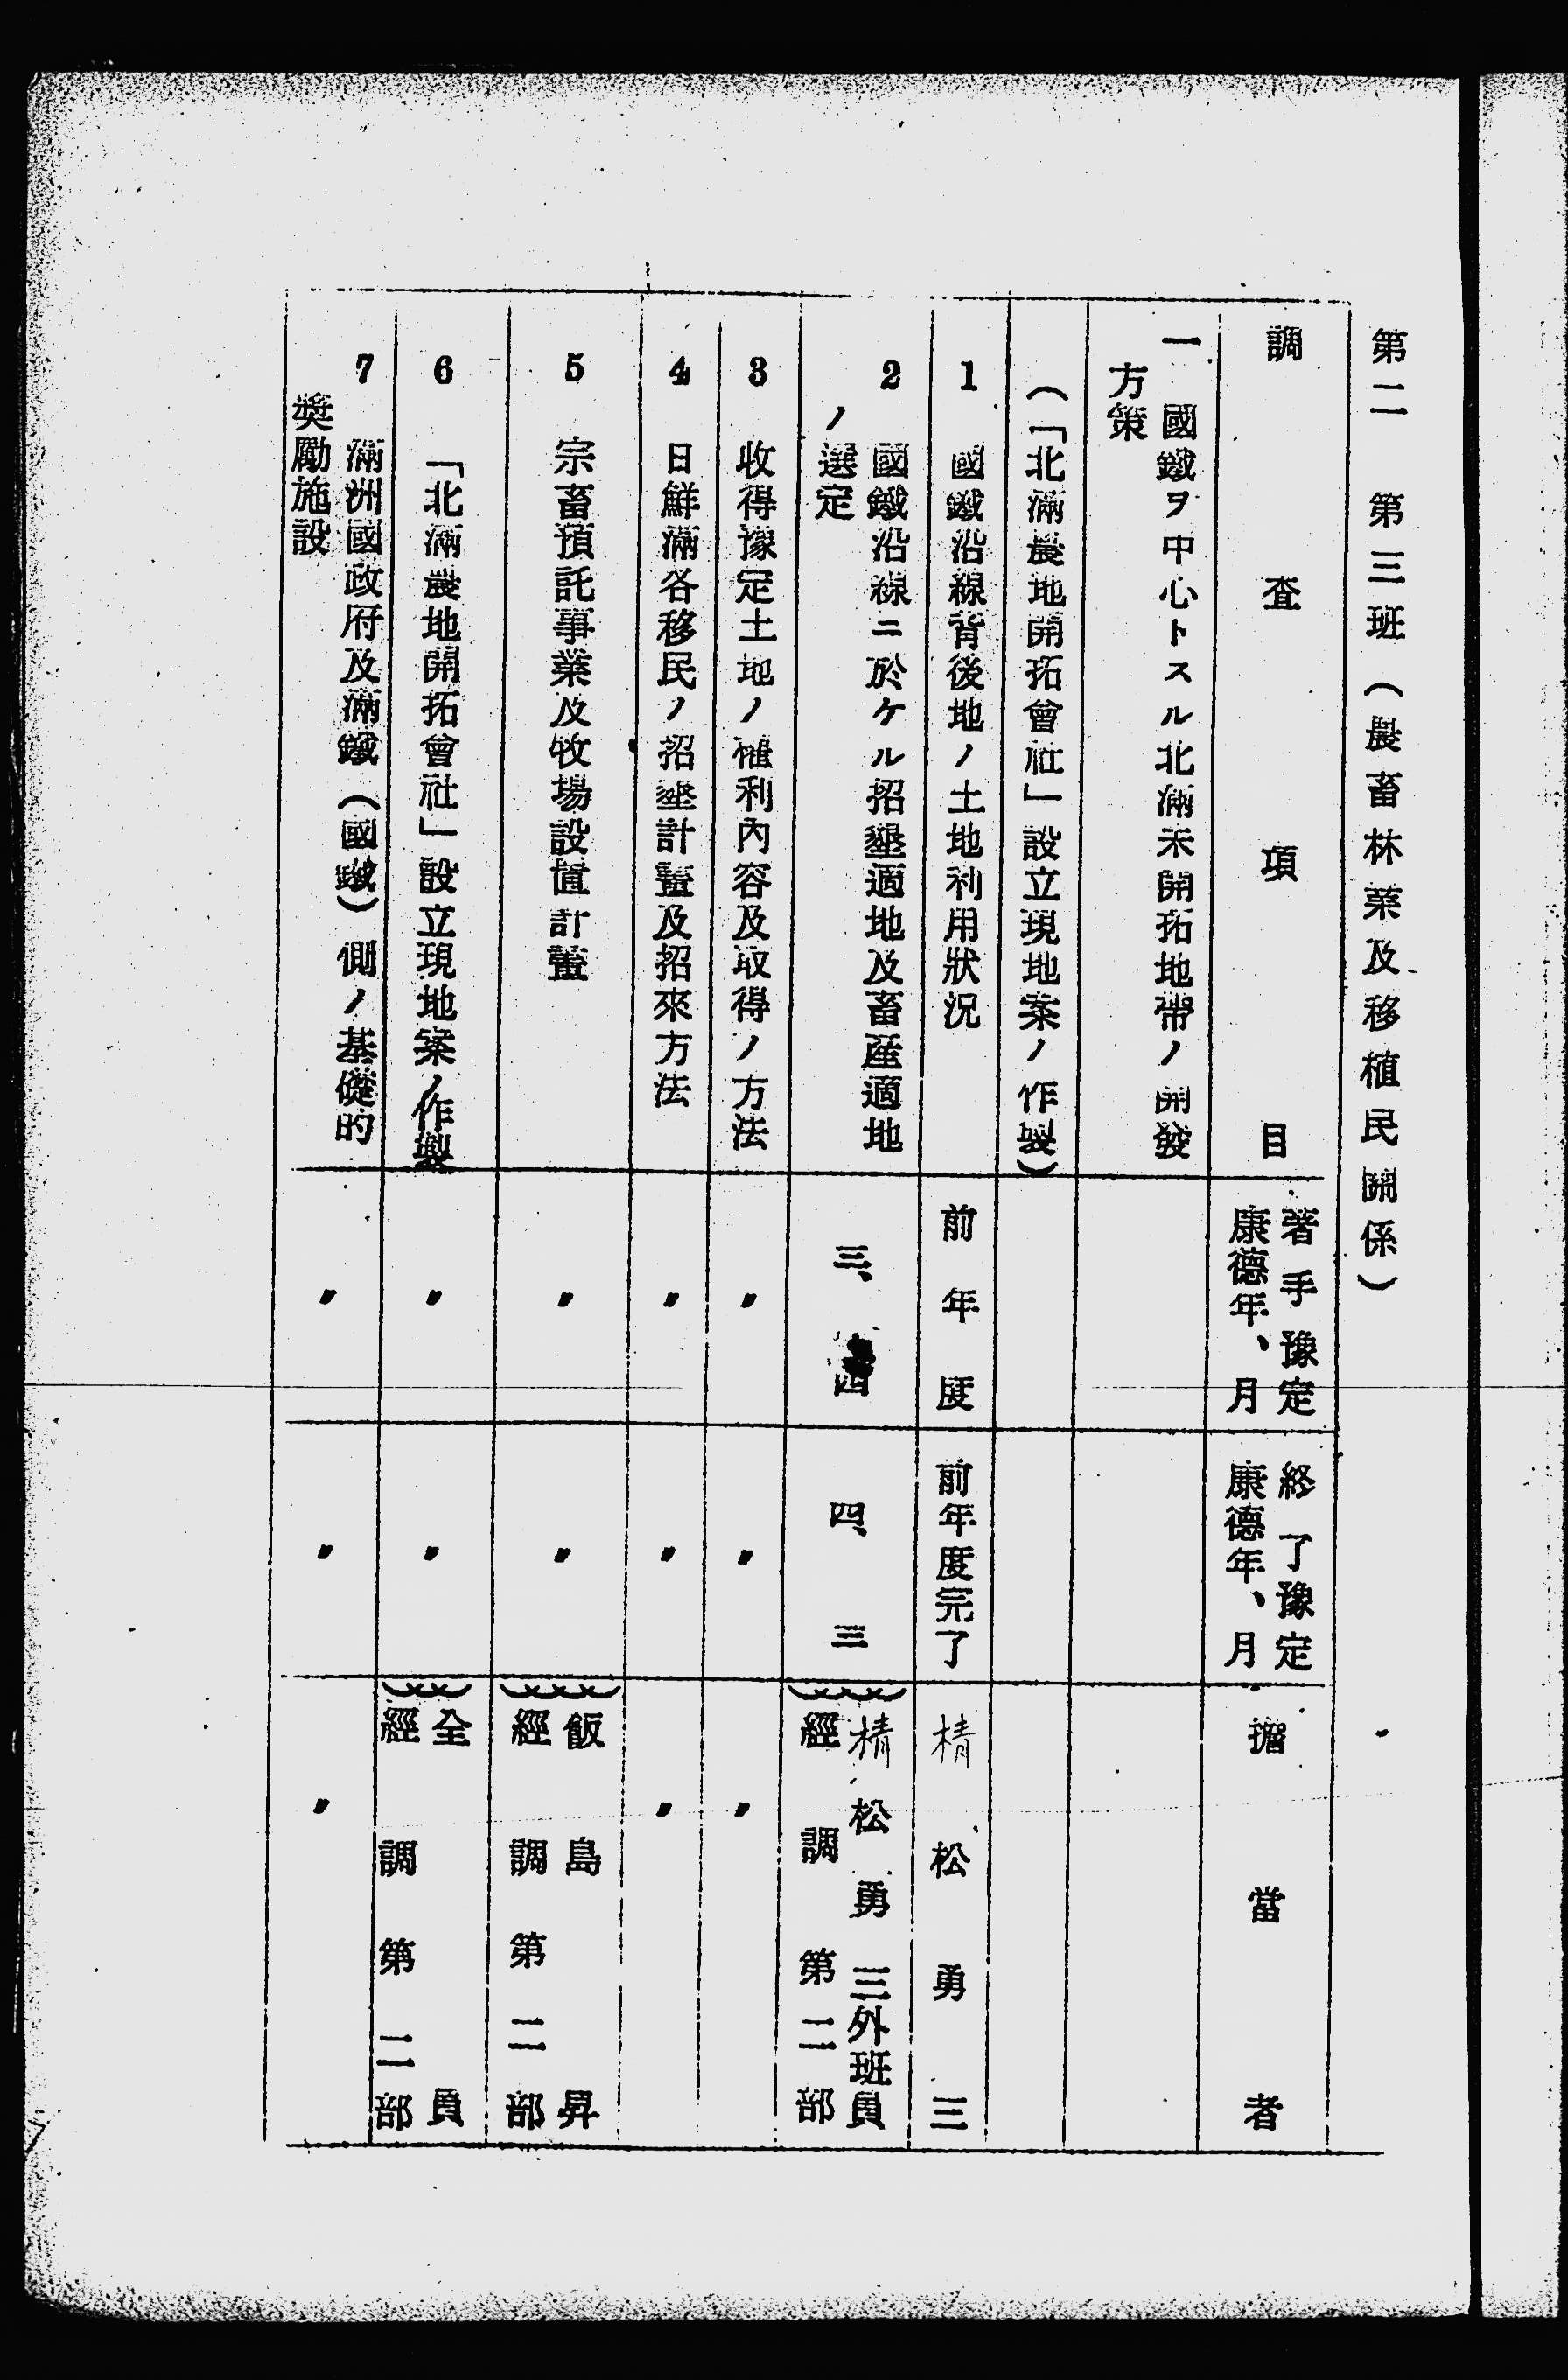 第二　第三班（農畜林業及移植民關係）
調査項目
著手豫定
康德年、月
終了豫定
康德年、月
擔當者
一　國鐵ヲ中心トスル北滿未開拓地帶ノ開發
方策
（「北滿農地開拓會社」設立現地案ノ作製）
1　國鐵沿線背後地ノ土地利用狀況
前年度
前年度完了
楠松勇三
2　國鐵沿線ニ於ケル招墾適地及畜産適地
ノ選定
三、四
四、三
楠松勇三外班員
經調第二部
3　收得豫定土地ノ權利內容及取得ノ方法
〃
〃
〃
4　日鮮滿各移民ノ招墾計畫及招來方法
〃
〃
〃
5　宗畜預託事業及牧場設置計畫
〃
〃
飯島昇
經調第二部
6　「北滿農地開拓會社」設立現地案ノ作製
〃
〃
全員
經調第二部
7　滿洲國政府及滿鐵（國鐵）側ノ基礎的
奬勵施設
〃
〃
〃